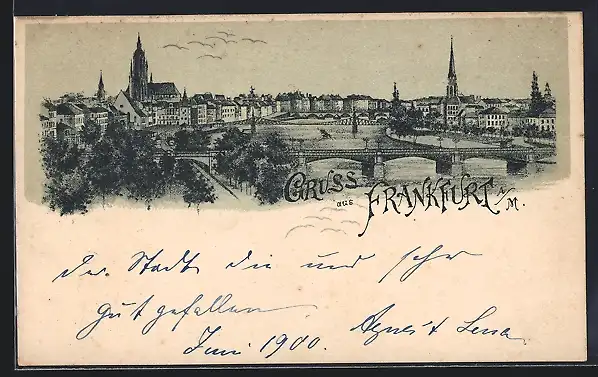 GRUSS
aus
FRANKFURT A/M.
Die Stadt die und sehr
gut gefallen
Juni 1900. Agnes & Lena